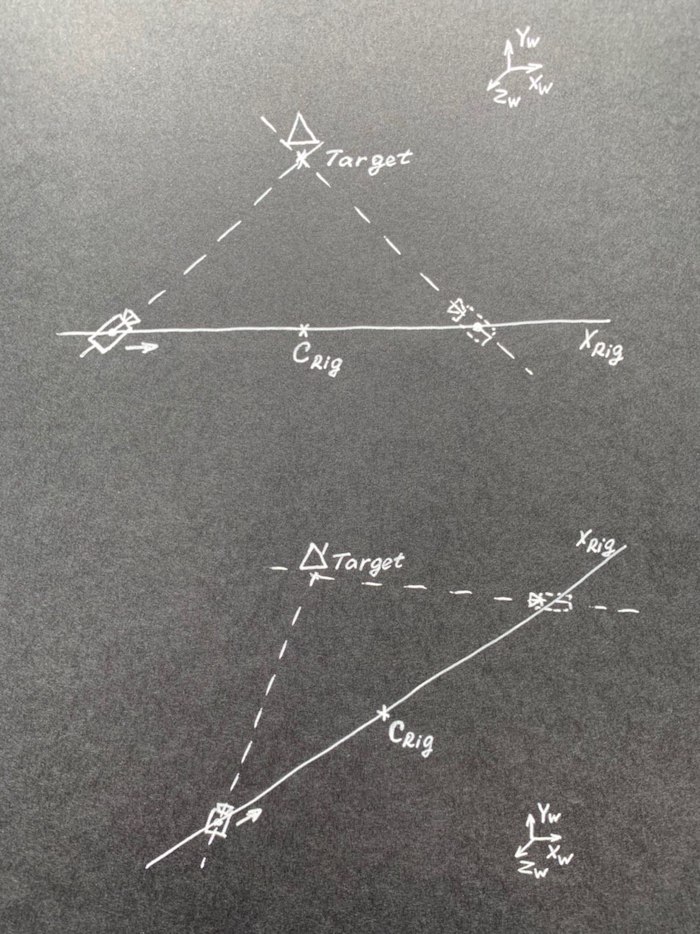 Yw
Xw
Zw
Target
CRig
XRig
XRig
Target
CRig
Yw
Xw
Zw